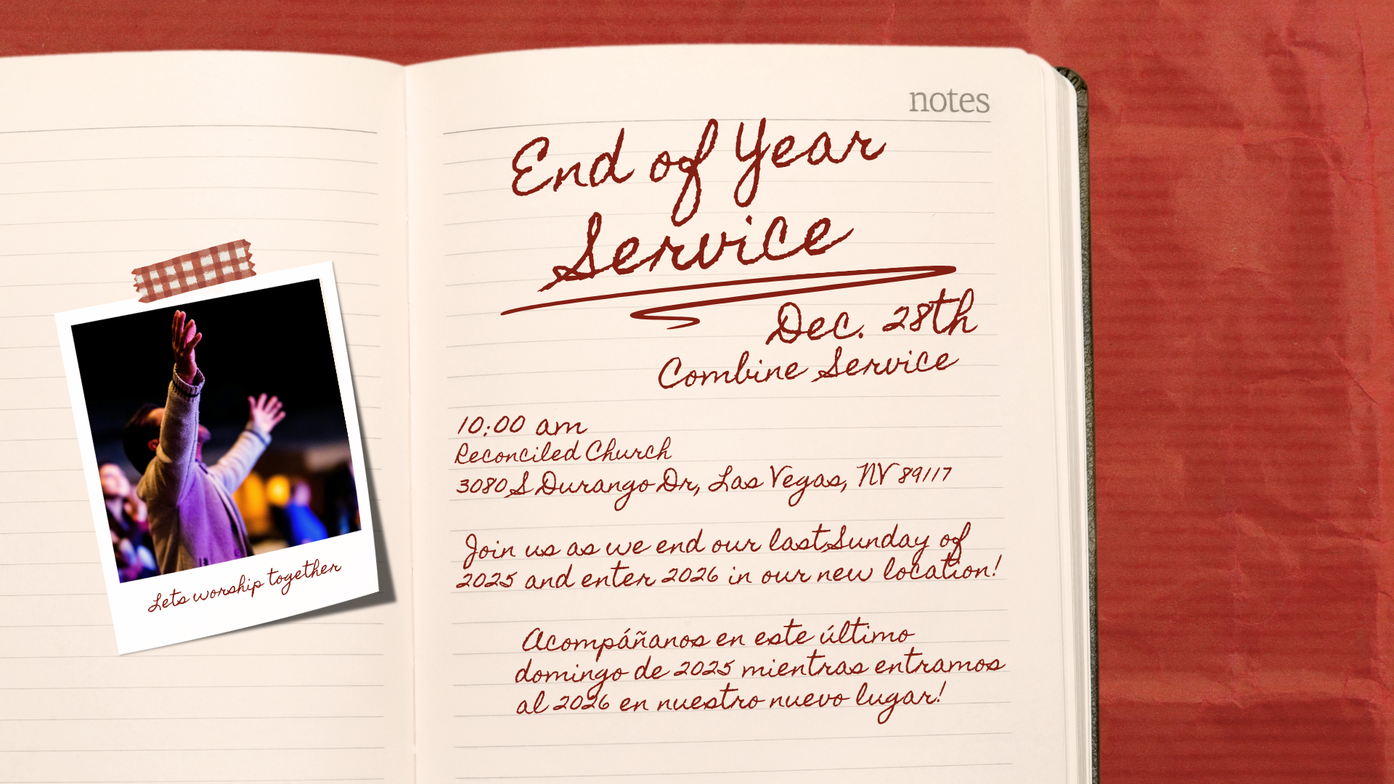 notes
End of Year
Service
Dec. 28th
Combine Service
10:00 am
Reconciled Church
3080 S Durango Dr, Las Vegas, NV 89117
Join us as we end our last Sunday of
2025 and enter 2026 in our new location!
Acompáñanos en este último
domingo de 2025 mientras entramos
al 2026 en nuestro nuevo lugar!
Lets worship together